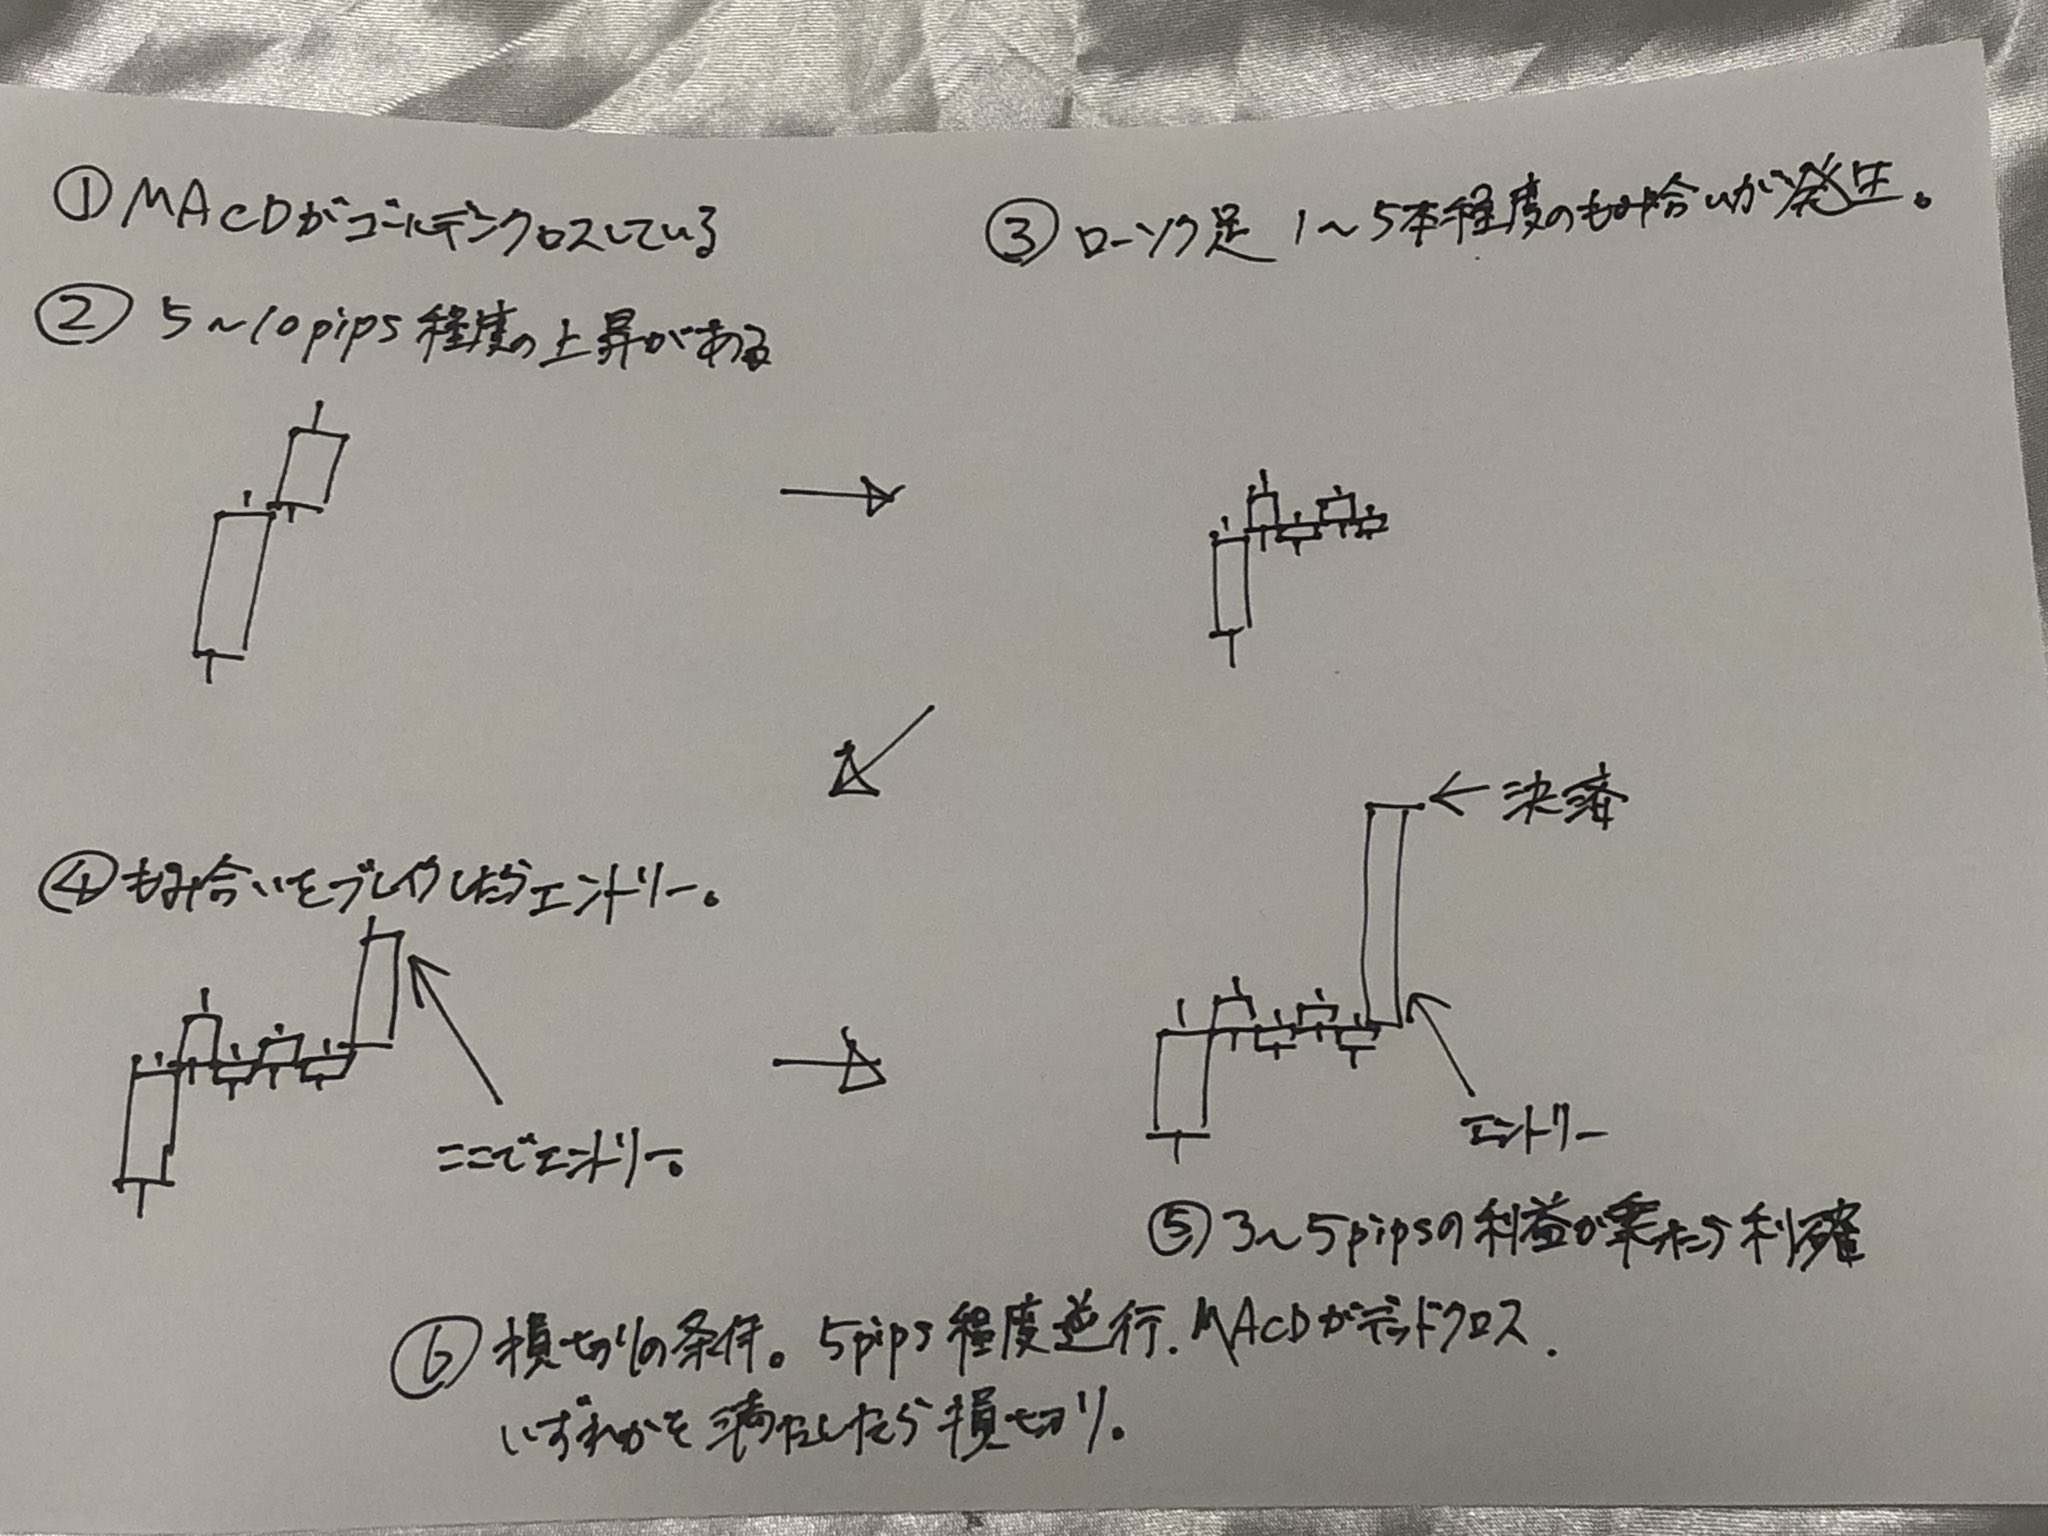 ① MACDがゴールデンクロスしている
② 5〜10pips程度の上昇がある
③ ローソク足 1〜5本程度のもみ合いが発生。
④ もみ合いをブレイクしたらエントリー。
ここでエントリー。
←決済
エントリー
⑤ 3〜5pipsの利益が乗ったら利確
⑥ 損切りの条件。5pips程度逆行. MACDがデッドクロス.
いずれかを満たしたら損切り。